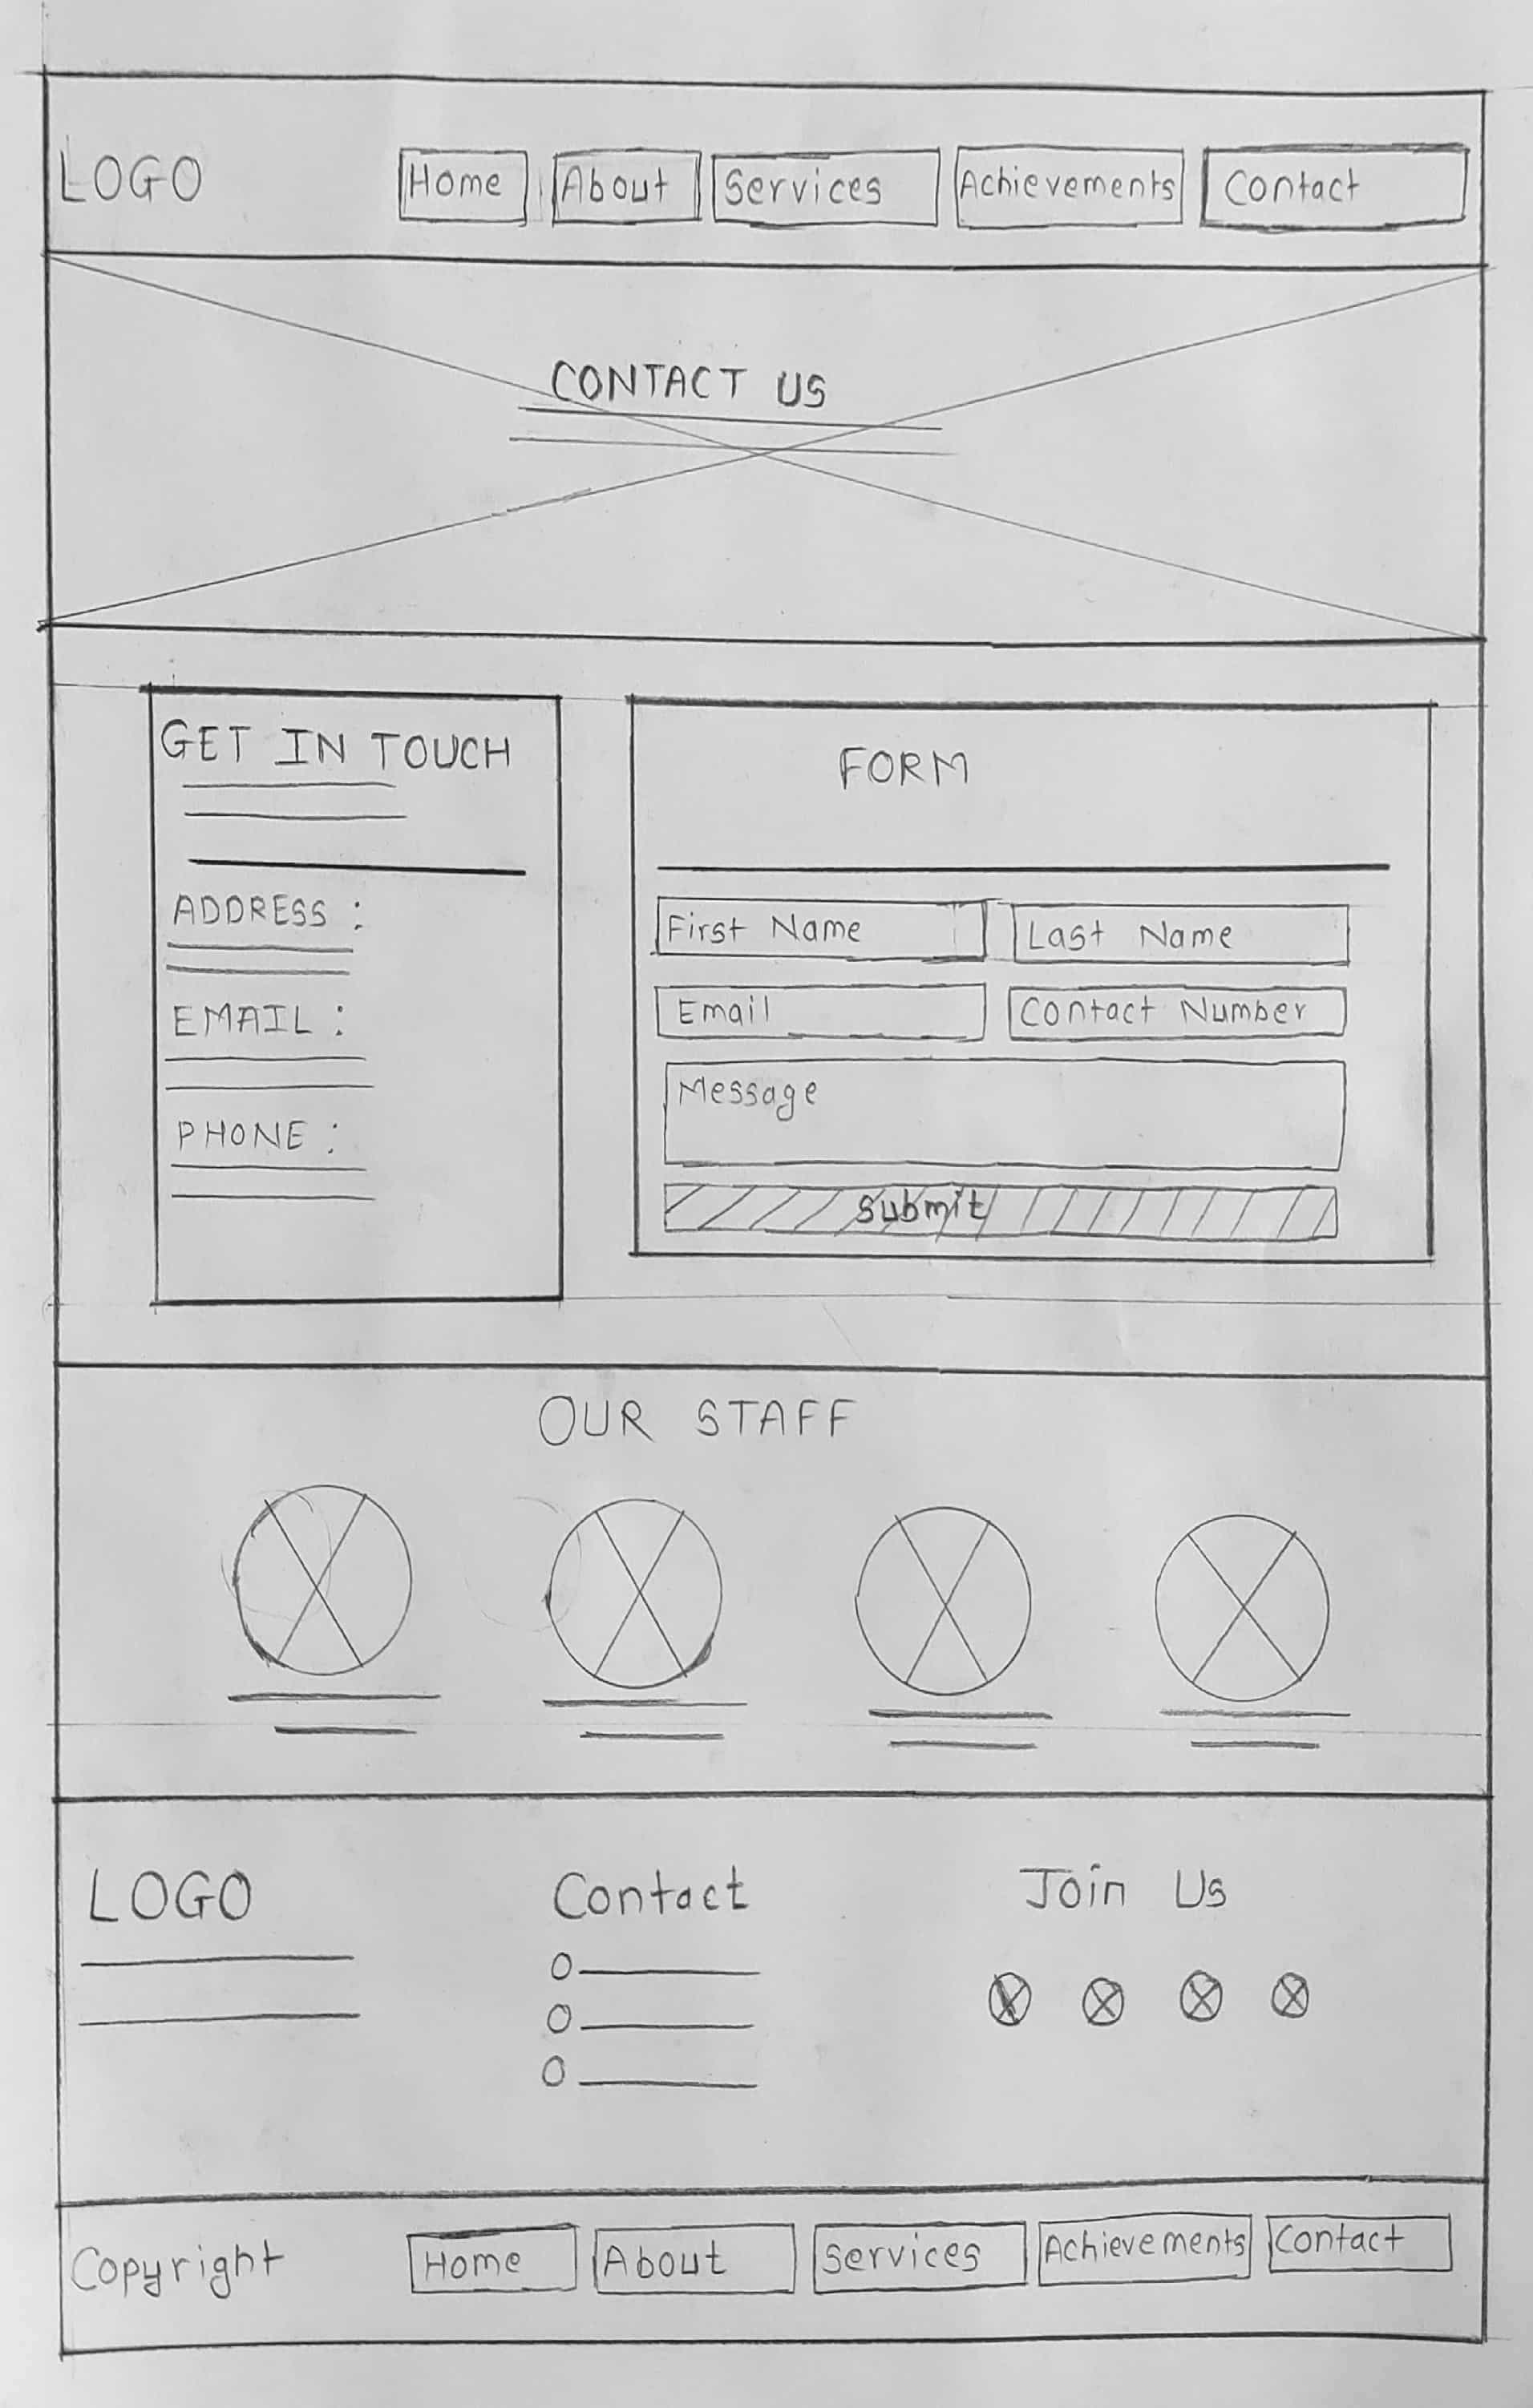 LOGO Home About Services Achievements Contact
CONTACT US
GET IN TOUCH
ADDRESS :
EMAIL :
PHONE :
FORM
First Name Last Name
Email Contact Number
Message
Submit
OUR STAFF
LOGO
Contact
Join Us
Copyright Home About Services Achievements Contact